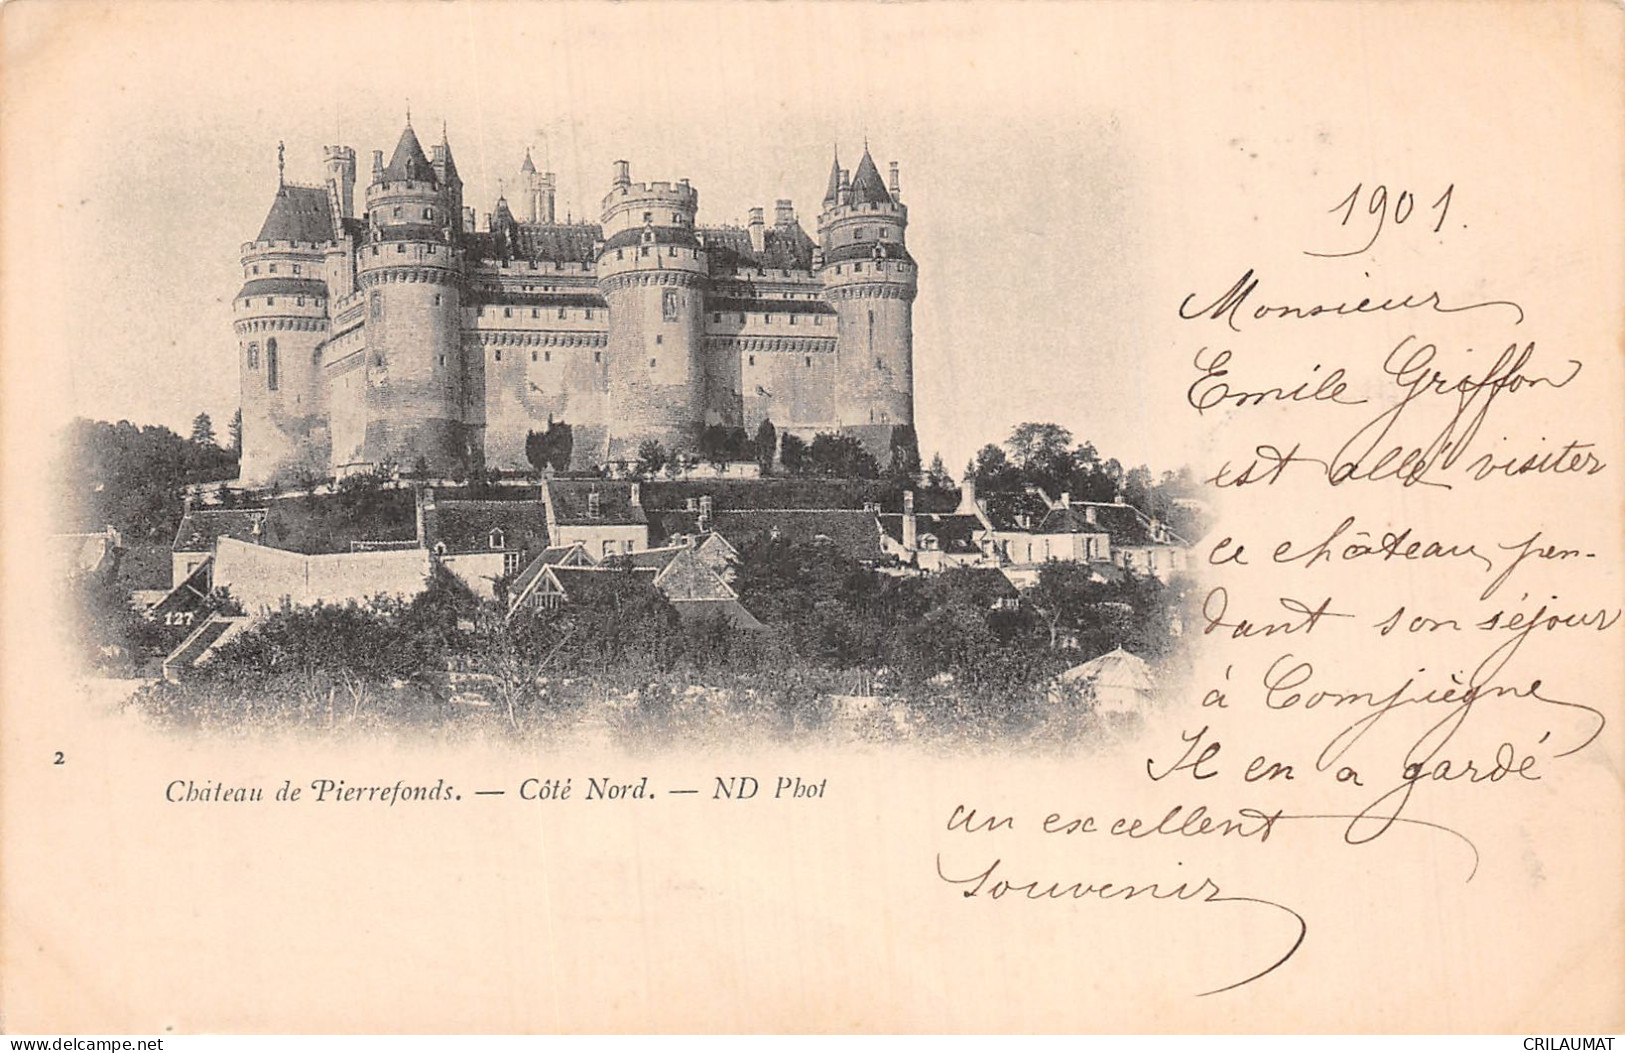 1901.
Monsieur
Emile Griffon
est allé visiter
ce château pen-
dant son séjour
à Compiègne
Il en a gardé
un excellent
souvenir
127
2
Château de Pierrefonds. — Côté Nord. — ND Phot
www.delcampe.net
CRILAUMAT